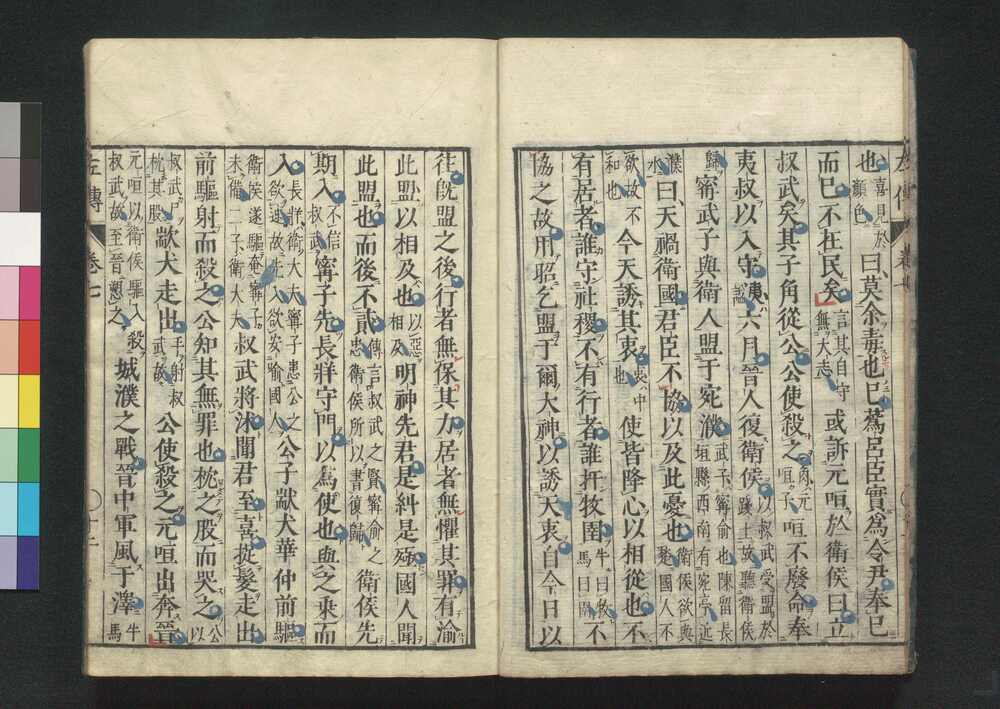 也喜見於顏色曰莫余毒也巳蒍呂臣實為令尹奉巳
而巳不在民矣言其自守無大志或訴元咺於衛侯曰立
叔武矣其子角從公公使殺之角元咺子咺不廢命奉
夷叔以入守夷謚六月晉人復衛侯以叔武受盟於踐土故聽衛侯
歸甯武子與衛人盟于宛濮武子甯俞也陳留長垣縣西南有宛亭近
濮水曰天禍衛國君臣不協以及此憂也衛侯欲與楚國人不
欲故不和也今天誘其衷衷中也使皆降心以相從也不
有居者誰守社稷不有行者誰扞牧圉牛曰牧馬曰圉不
協之故用昭乞盟于爾大神以誘天衷自今日以
往既盟之後行者無保其力居者無懼其罪有渝
此盟以相及也以惡相及明神先君是糾是殛國人聞
此盟也而後不貳傳言叔武之賢甯俞之忠衛侯所以書復歸衛侯先
期入不信叔武甯子先長牂守門以為使也與之乘而
入長牂衛大夫甯子患公之欲速故先入欲安喻國人公子歂犬華仲前驅
衛侯遂驅奄甯子未備二子衛大夫叔武將沐聞君至喜捉髮走出
前驅射而殺之公知其無罪也枕之股而哭之公以
叔武尸枕其股歂犬走出手射叔武故公使殺之元咺出奔晉
元咺以衛侯驅入殺叔武故至晉愬之城濮之戰晉中軍風于澤牛馬
左傳 卷七